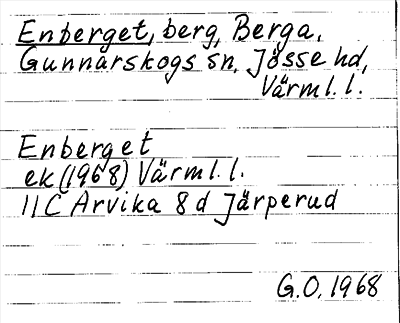 Enberget, berg, Berga,
Gunnarskogs sn, Jösse hd,
Värml. l.
Enberget
ek (1968) Värml. l.
11C Arvika 8 d Järperud
G.O. 1968